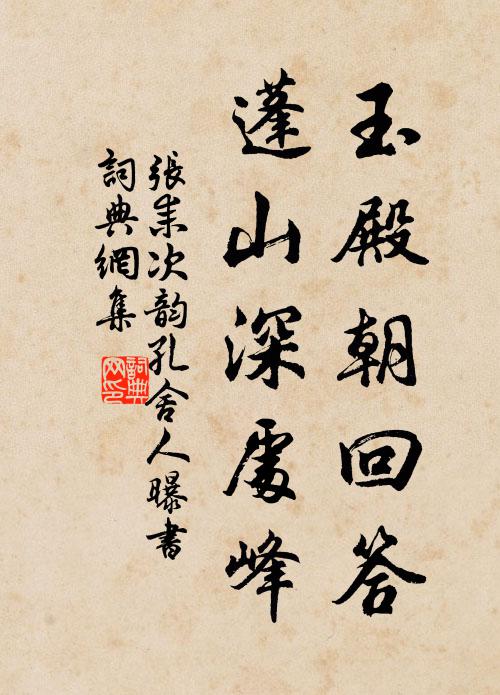 玉殿朝回答
蓬山深處峰
張耒次韵孔舍人曝書
詞典網集
詞典
网印